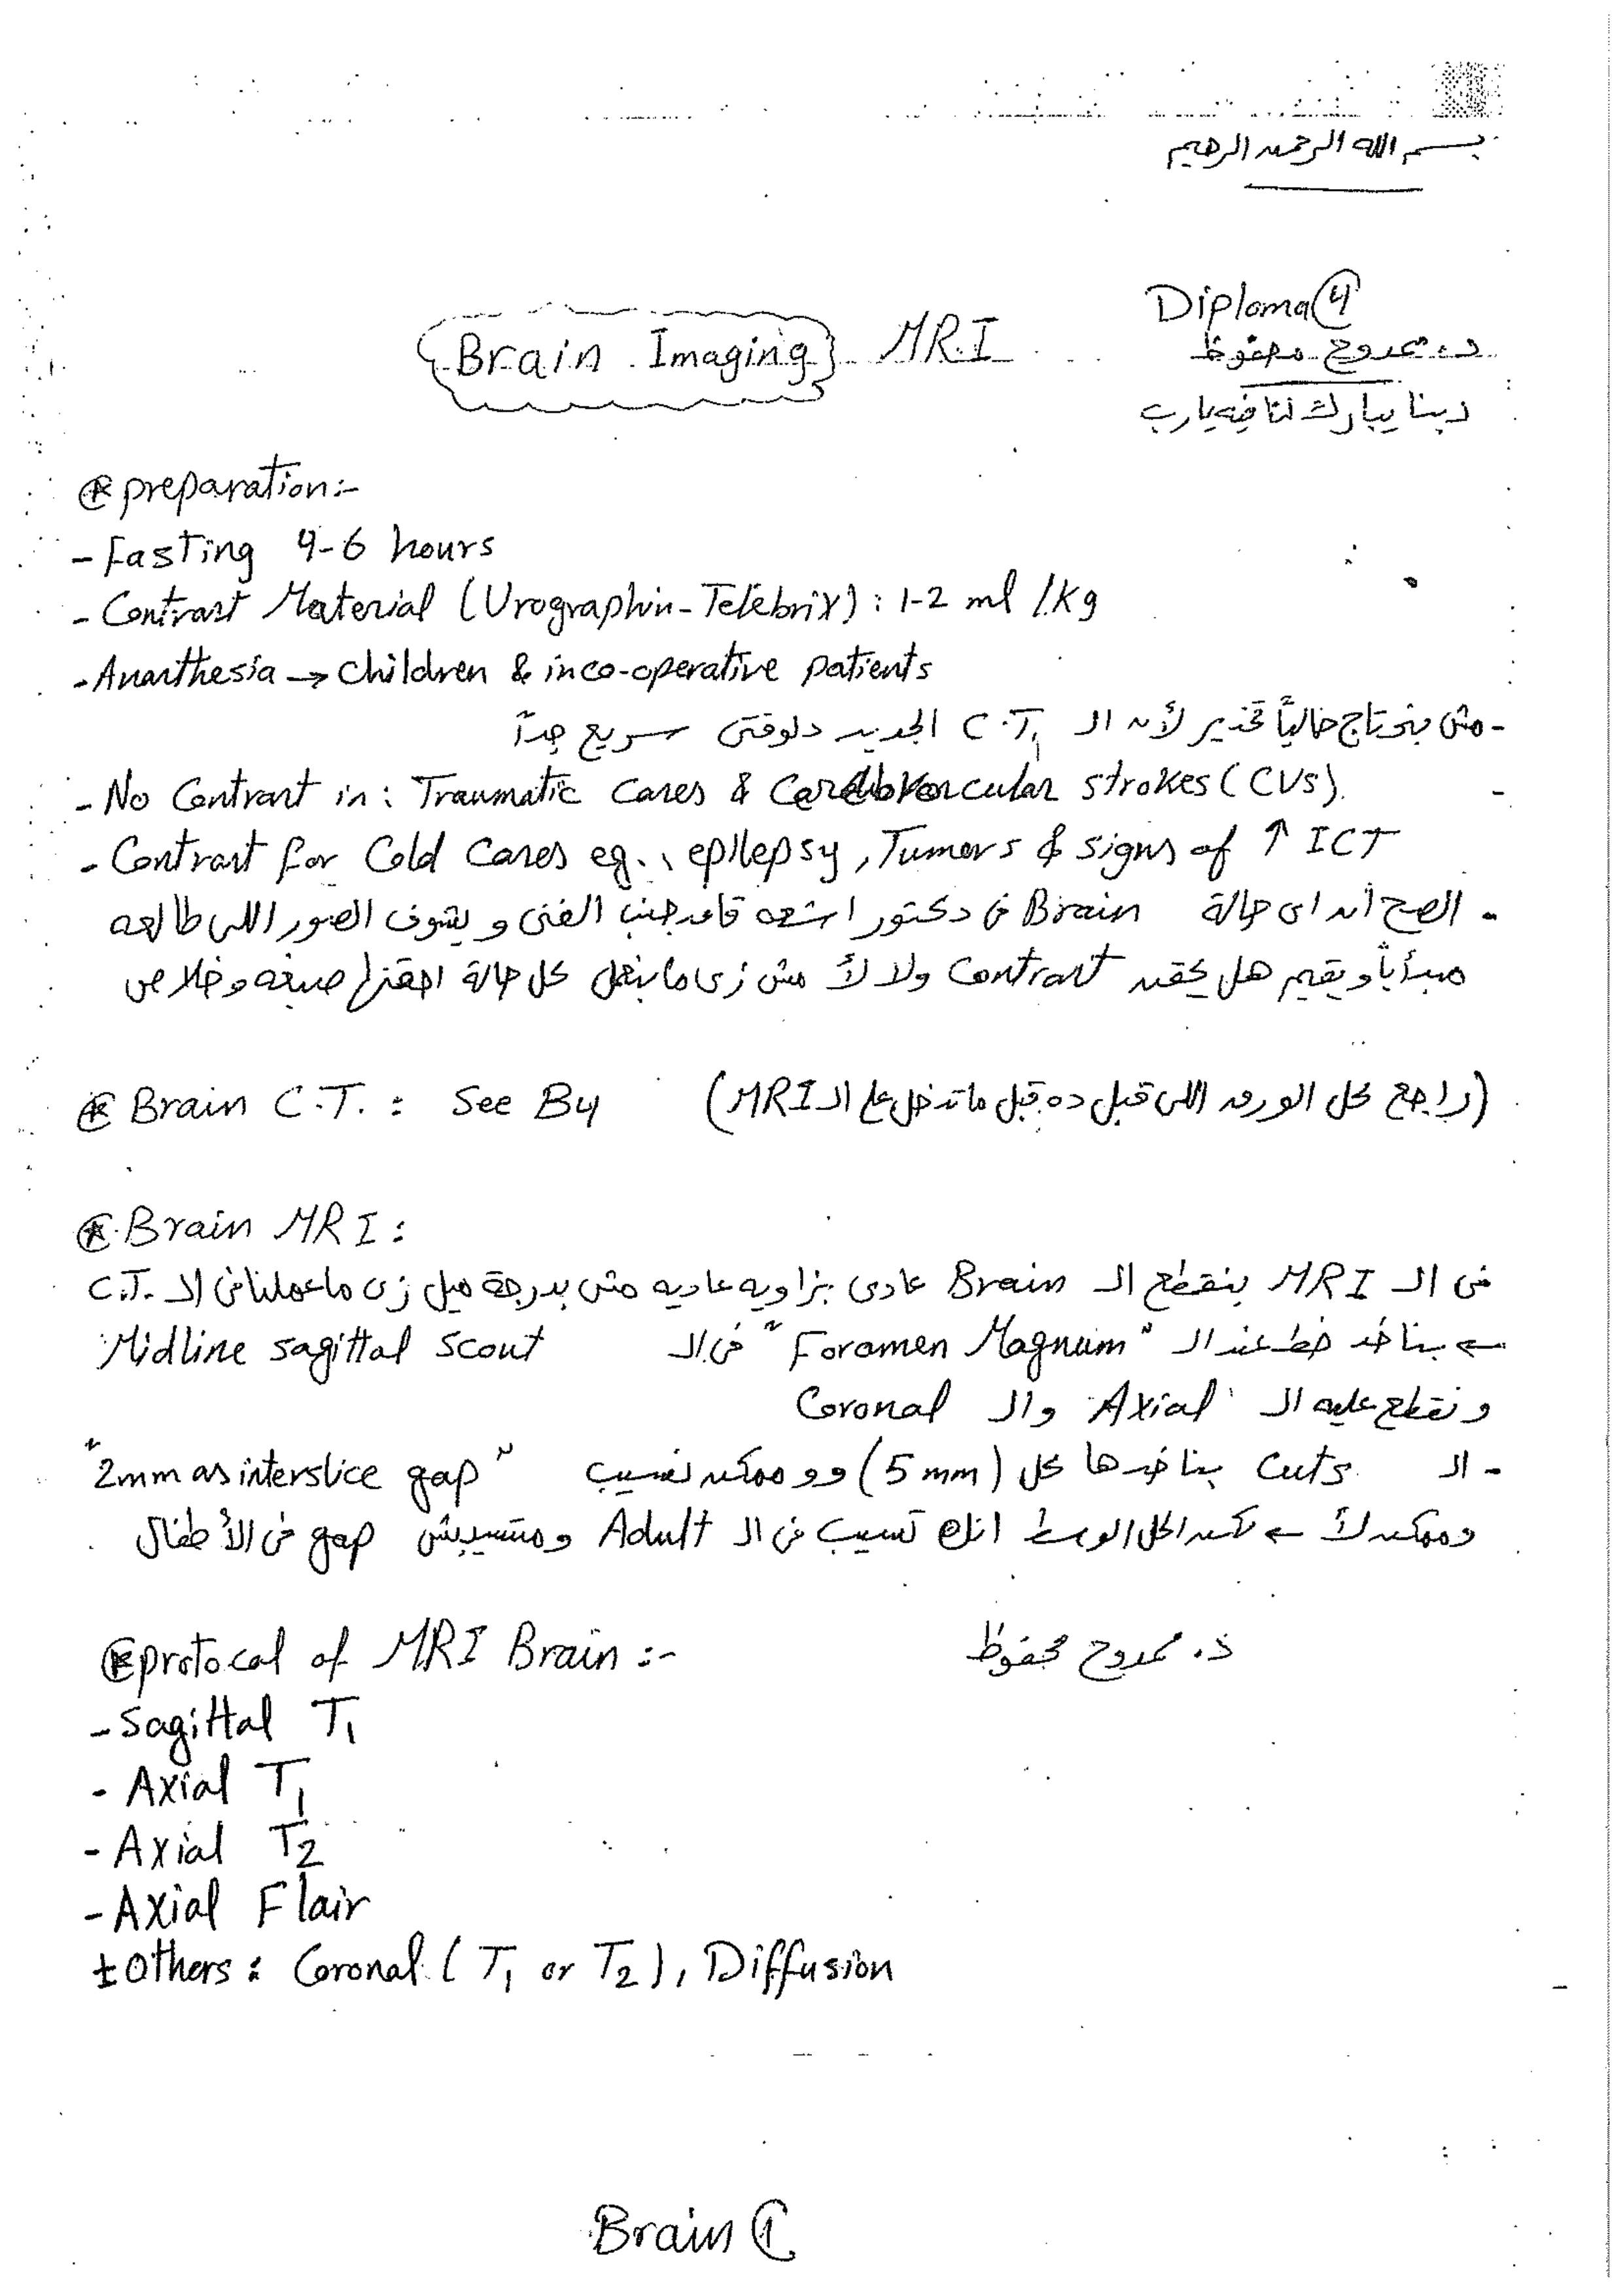 بسم الله الرحمن الرحيم
Diploma 4
Brain Imaging MRI
د. ممدوح محفوظ
ربنا يبارك لنا فيه يارب
⊛ preparation:-
- Fasting 4-6 hours
- Contrast Material (Urographin-Telebrix) : 1-2 ml /Kg
- Anasthesia → children & inco-operative patients
- مش بنحتاج حالياً تخدير لأن الـ C.T. الجديد دلوقتى سريع جداً
- No Contrast in : Traumatic Cases & vascular strokes (CVs).
- Contrast for Cold Cases eg., epilepsy, Tumors & signs of ↑ ICT
- الصح أن اى حالة Brain فى دكتور اشعه قاعد جنب الفنى ويشوف الصور اللى طالعه
مبدأياً ويقيم هل يحقن Contrast ولا لأ مش زى ما بنعمل كل حالة احقنها صبغه وخلاص
⊛ Brain C.T. : See By (راجع كل الورق اللى قبل ده قبل ما تدخل على الـ MRI)
⊛ Brain MRI :
فى الـ MRI بنقطع الـ Brain عادى بزاويه عاديه مش بدرجة ميل زى ما عملنا فى الـ C.T.
← بناخد خط عند الـ "Foramen Magnum" فى الـ Midline sagittal scout
ونقطع عليه الـ Axial والـ Coronal
- الـ Cuts بناخدها كل (5 mm) وممكن نسيب "2mm as interslice gap"
وممكن لأ ← لكن الحل الوسط انك تسيب فى الـ Adult ومتسيبش gap فى الأطفال
⊛ protocal of MRI Brain :-
د. ممدوح محفوظ
- Sagittal T1
- Axial T1
- Axial T2
- Axial Flair
± Others : Coronal (T1 or T2), Diffusion
Brain 1